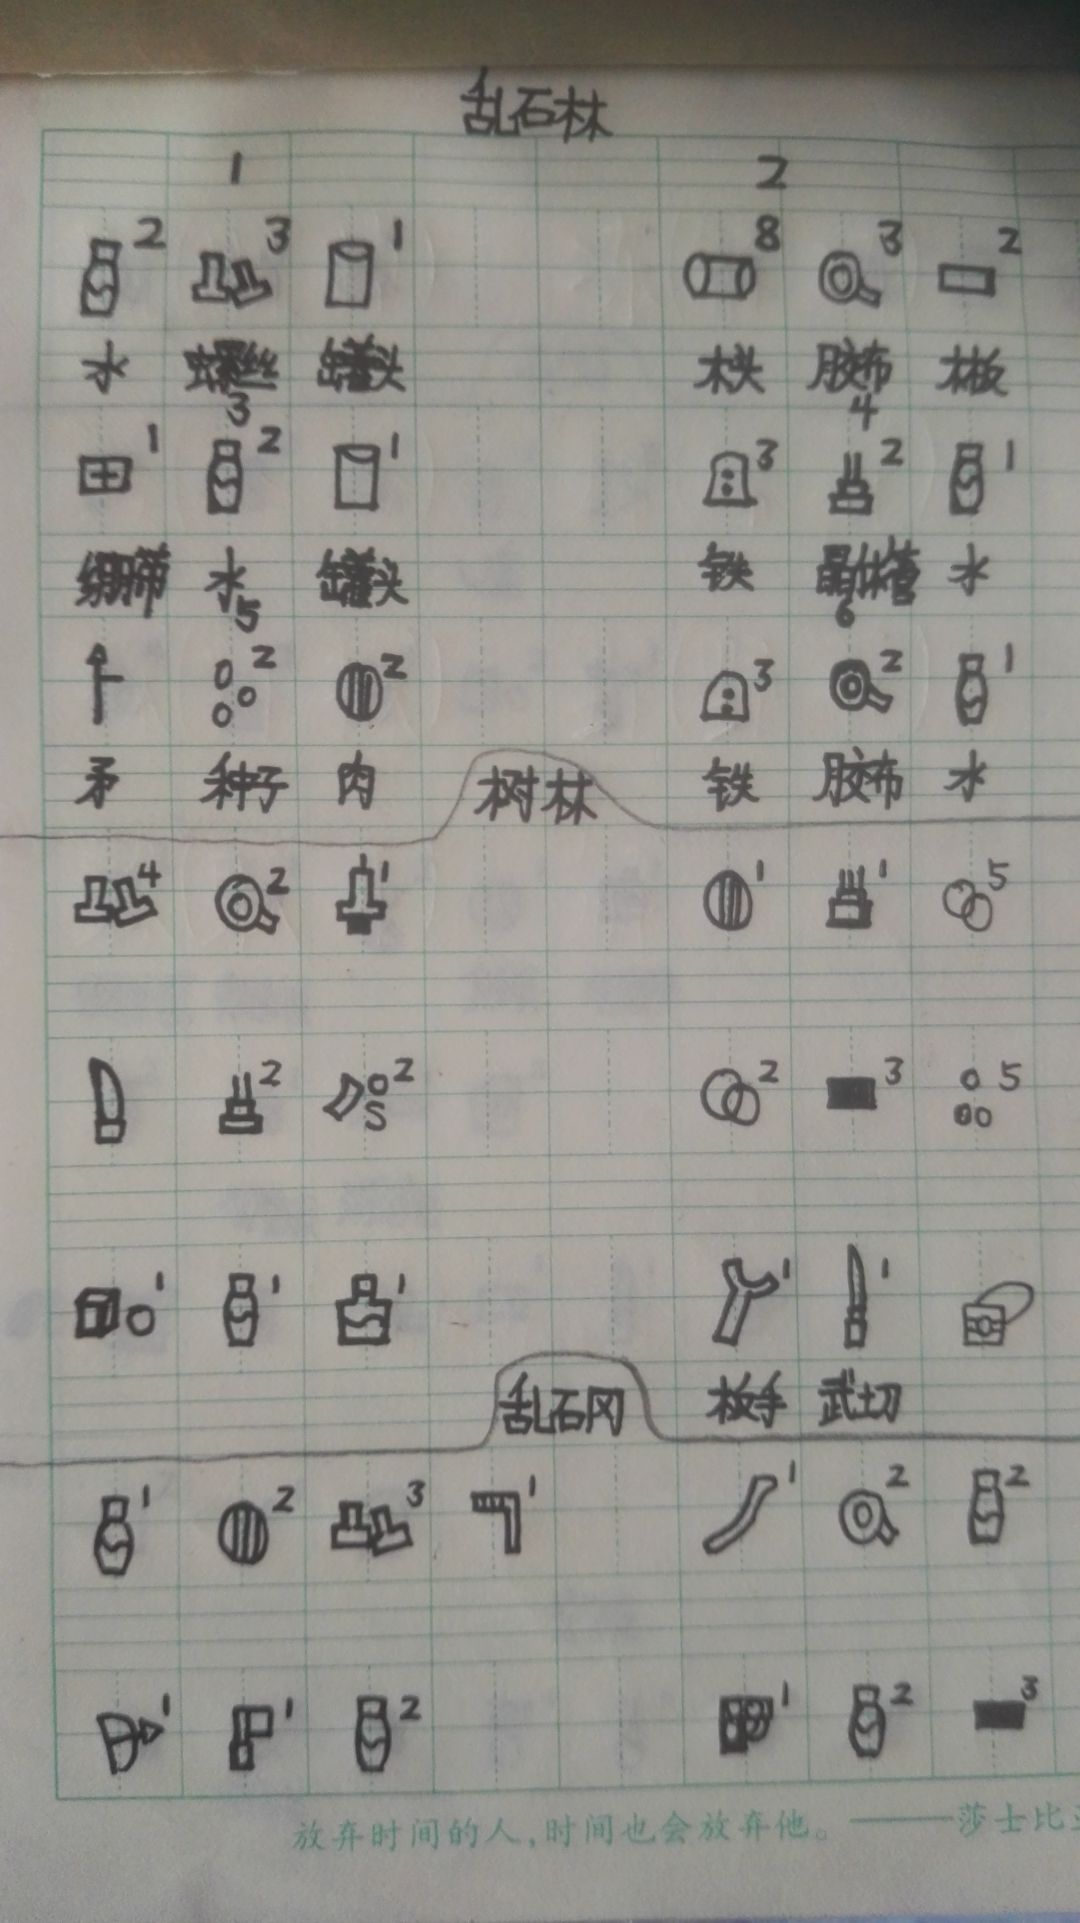 乱石林
1 2
2 3 1 8 3 2
水 螺丝 罐头 木头 胶布 木板
3 4
1 2 1 3 2 1
绷带 水 罐头 铁 晶体管 水
5 6
2 2 3 2 1
矛 种子 肉 铁 胶布 水
树林
4 2 1 1 1 5
2 2 2 3 5
1 1 1 1 1
乱石冈 板手 武士刀
1 2 3 1 1 2 2
1 1 2 1 2 3
放弃时间的人，时间也会放弃他。——莎士比